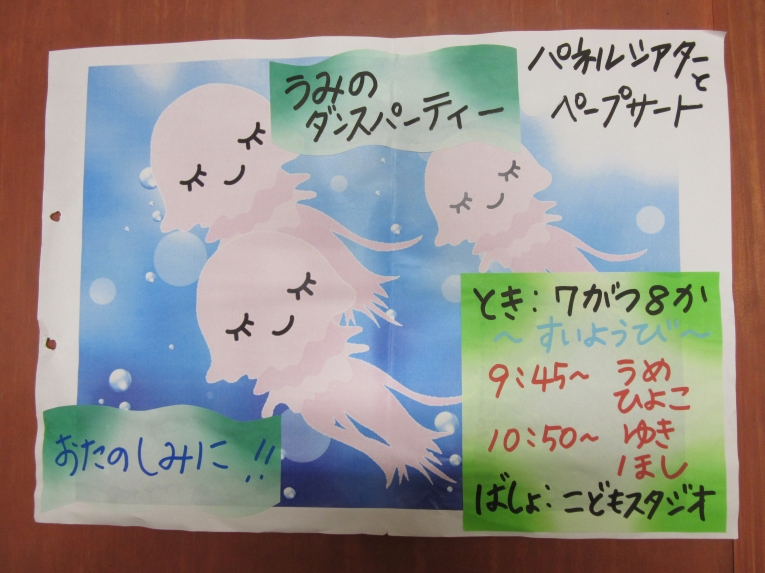 うみの
ダンスパーティー
パネルシアター
と
ペープサート
とき：7がつ8か
～すいようび～
9：45～ うめ
ひよこ
10：50～ ゆき
ほし
ばしょ：こどもスタジオ
おたのしみに!!